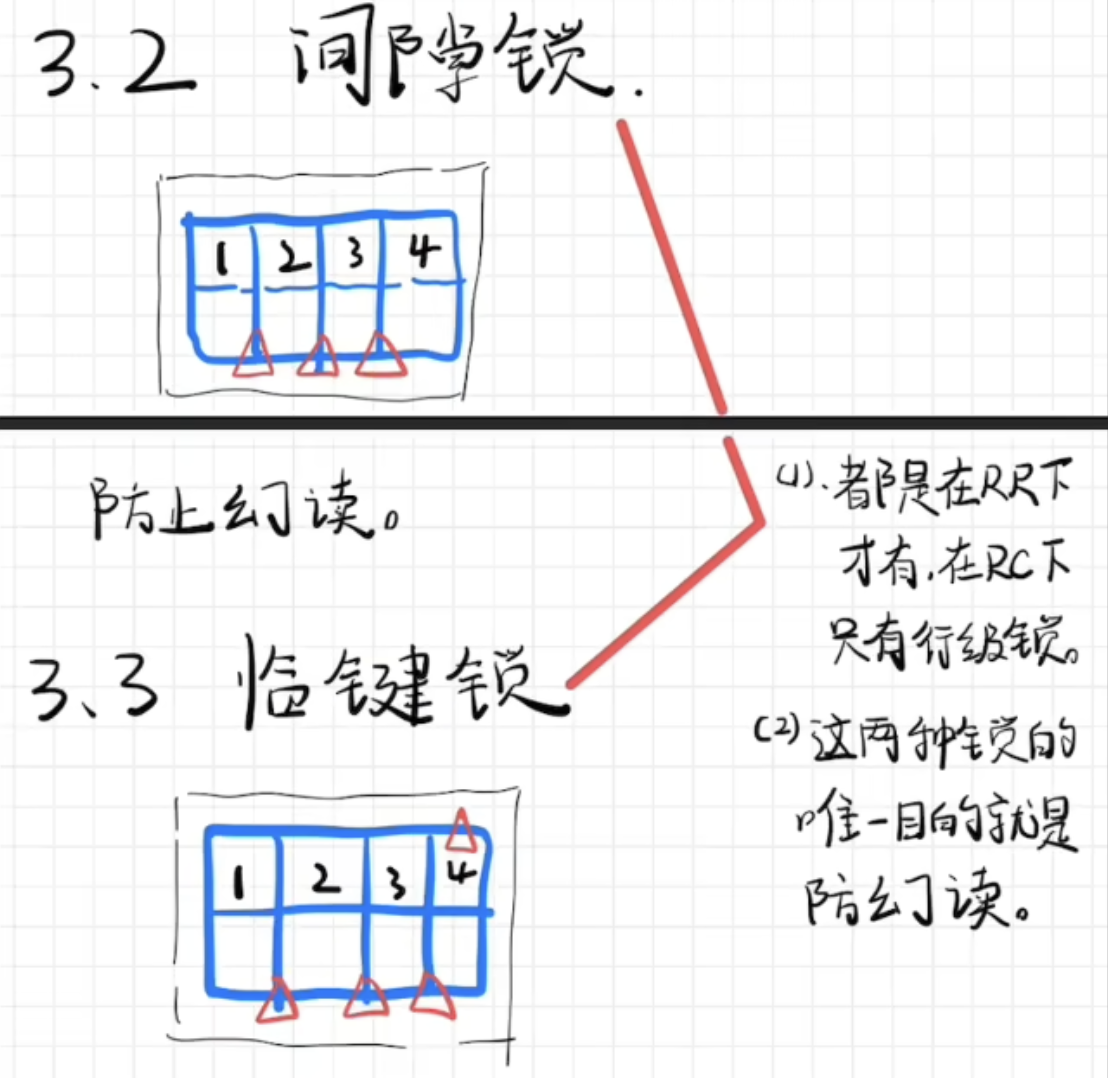 3.2 间隙锁.
1 2 3 4
防止幻读。
3、3 临键锁
1 2 3 4
(1).都是在RR下
才有,在RC下
只有行级锁。
(2)这两种锁的
唯一目的就是
防幻读。